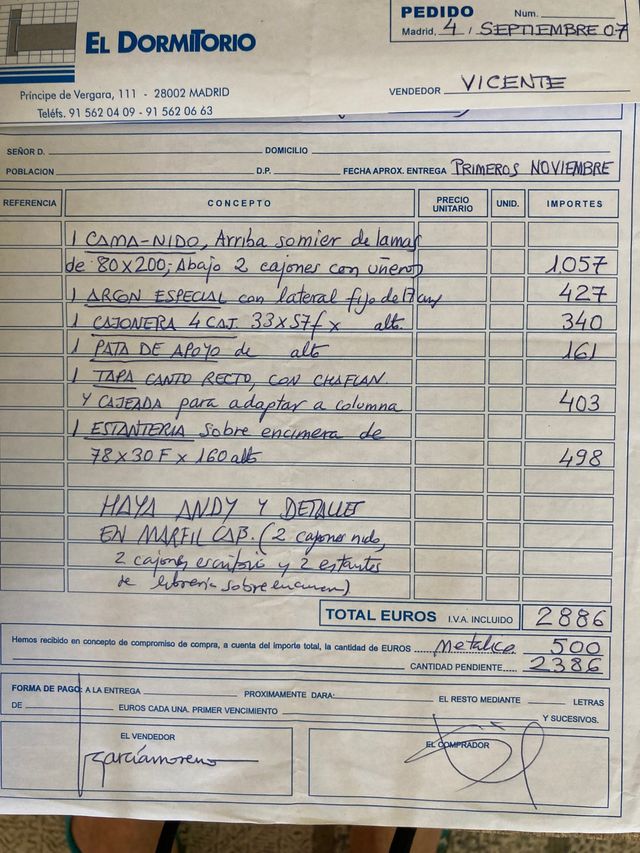 EL DORMITORIO
Príncipe de Vergara, 111 - 28002 MADRID
Teléfs. 91 562 04 09 - 91 562 06 63
PEDIDO Num.
Madrid, 4 / SEPTIEMBRE 07
VENDEDOR VICENTE
SEÑOR D. DOMICILIO
POBLACION D.P. FECHA APROX. ENTREGA PRIMEROS NOVIEMBRE
REFERENCIA CONCEPTO PRECIO UNITARIO UNID. IMPORTES
1 CAMA-NIDO, Arriba somier de lamas
de 80X200; Abajo 2 cajones con uñeros 1057
1 ARCON ESPECIAL con lateral fijo de 17 cm 427
1 CAJONERA 4 CAJ. 33x57f x alto. 340
1 PATA DE APOYO de alto 161
1 TAPA CANTO RECTO, CON CHAFLAN.
Y CAJEADA para adaptar a columna 403
1 ESTANTERIA sobre encimera de
78X30F X 160 alto 498
HAYA ANDY Y DETALLES
EN MARFIL CAB. (2 cajones nido,
2 cajones escritorio y 2 estantes
de libreria sobre encimera)
TOTAL EUROS I.V.A. INCLUIDO 2886
Hemos recibido en concepto de compromiso de compra, a cuenta del importe total, la cantidad de EUROS Metalico 500
CANTIDAD PENDIENTE 2386
FORMA DE PAGO: A LA ENTREGA PROXIMAMENTE DARA: EL RESTO MEDIANTE LETRAS
DE EUROS CADA UNA. PRIMER VENCIMIENTO Y SUCESIVOS.
EL VENDEDOR EL COMPRADOR
garcíamoreno